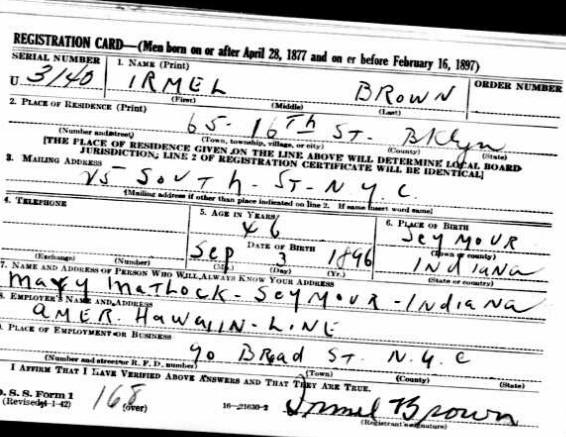 REGISTRATION CARD—(Men born on or after April 28, 1877 and on or before February 16, 1897)
SERIAL NUMBER 1. NAME (Print) ORDER NUMBER
U 3140 IRMEL BROWN
(First) (Middle) (Last)
2. PLACE OF RESIDENCE (Print)
65- 16Th ST- BKlyn
(Number and street) (Town, township, village, or city) (County) (State)
[THE PLACE OF RESIDENCE GIVEN ON THE LINE ABOVE WILL DETERMINE LOCAL BOARD
JURISDICTION; LINE 2 OF REGISTRATION CERTIFICATE WILL BE IDENTICAL]
3. MAILING ADDRESS
25- SOUTH- ST- N.Y.C.
[Mailing address if other than place indicated on line 2. If same insert word same]
4. TELEPHONE 5. AGE IN YEARS 6. PLACE OF BIRTH
46 SEYMOUR
DATE OF BIRTH (Town or county)
Sep 3 1896 INDIANA
(Exchange) (Number) (Mo.) (Day) (Yr.) (State or country)
7. NAME AND ADDRESS OF PERSON WHO WILL ALWAYS KNOW YOUR ADDRESS
MARY MATLOCK- SEYMOUR- INDIANA
8. EMPLOYER'S NAME AND ADDRESS
AMER. HAWAIIN- LINE
9. PLACE OF EMPLOYMENT OR BUSINESS
90 Broad ST. N.Y.C
(Number and street or R. F. D. number) (Town) (County) (State)
I AFFIRM THAT I HAVE VERIFIED ABOVE ANSWERS AND THAT THEY ARE TRUE.
D. S. S. Form 1
(Revised 4-1-42) 168 (over) 16—21630-2 Irmel Brown
(Registrant's signature)